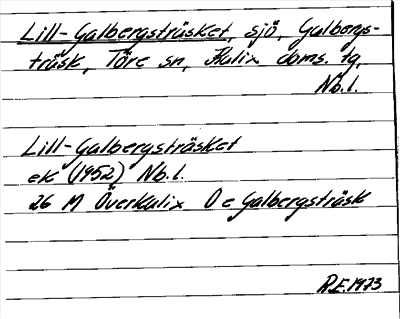 Lill-Galbergsträsket, sjö, Galbergs-
träsk, Töre sn, Kalix doms. tg,
Nb.l.
Lill-Galbergsträsket
ek (1952) Nb.l.
26 M Överkalix O e Galbergsträsk
R.E. 1973